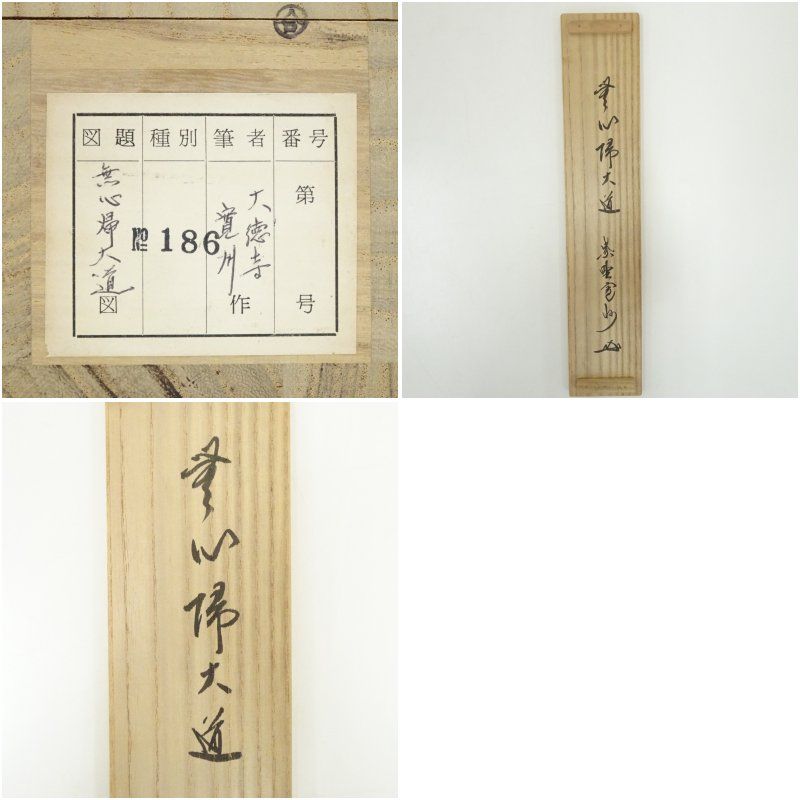 図題 種別 筆者 番号
第
号
大徳寺
寛州
作
№ 186
無心帰大道
図
無心帰大道 紫野寛州
無心帰大道